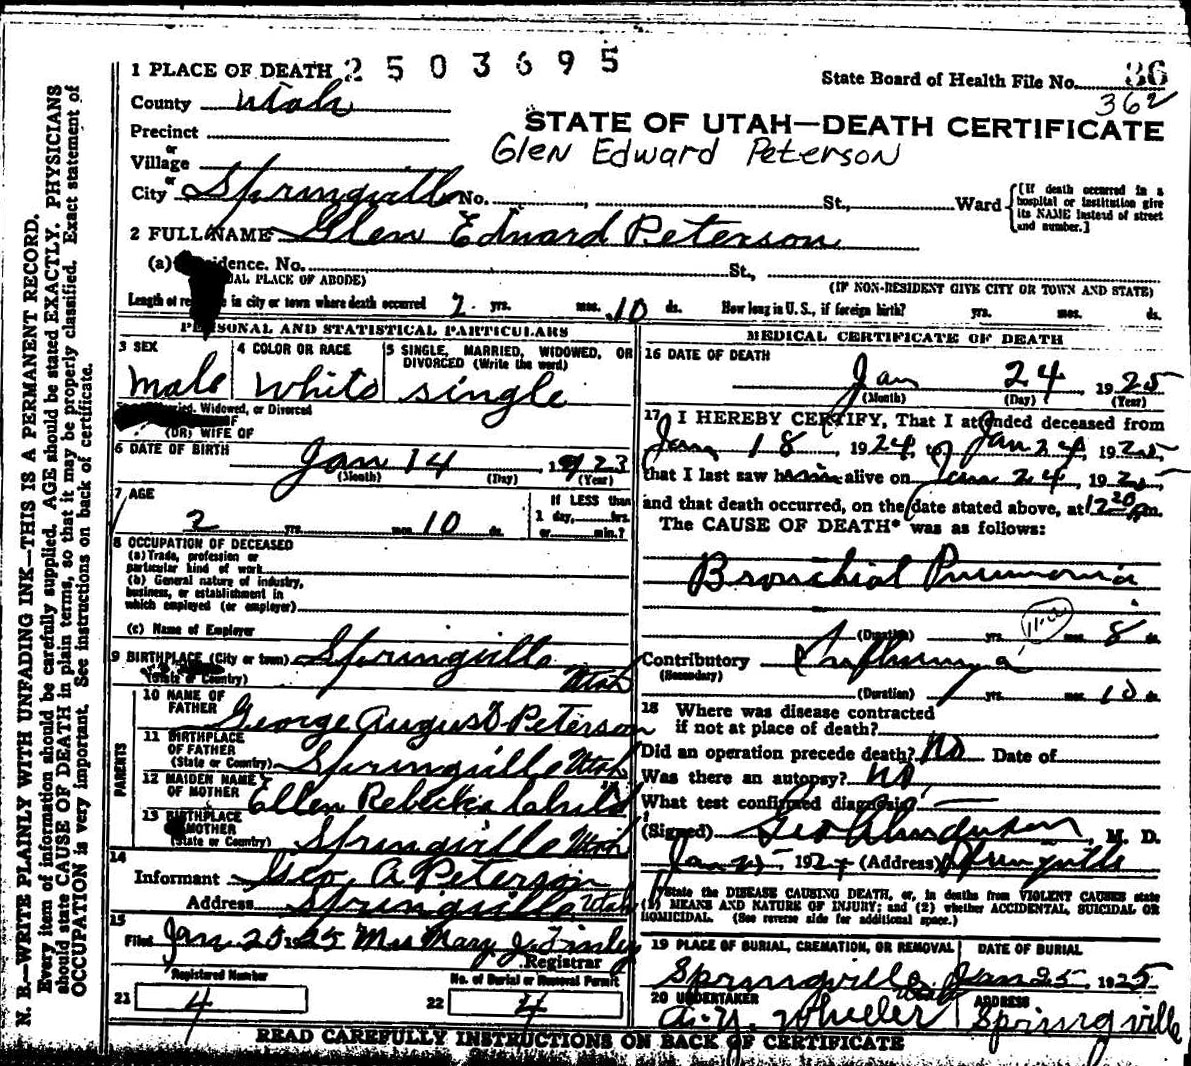 N. B.—WRITE PLAINLY WITH UNFADING INK—THIS IS A PERMANENT RECORD.
Every item of information should be carefully supplied. AGE should be stated EXACTLY. PHYSICIANS
should state CAUSE OF DEATH in plain terms, so that it may be properly classified. Exact statement of
OCCUPATION is very important. See instructions on back of certificate.
1 PLACE OF DEATH 2503695
State Board of Health File No. 36
362
County Utah
STATE OF UTAH—DEATH CERTIFICATE
Glen Edward Peterson
Precinct
or
Village
or
City Springville No. , St., Ward
[If death occurred in a
hospital or institution give
its NAME instead of street
and number.]
2 FULL NAME Glen Edward Peterson
(a) Residence. No. St.,
(USUAL PLACE OF ABODE) (IF NON-RESIDENT GIVE CITY OR TOWN AND STATE)
Length of residence in city or town where death occurred 2 yrs. mos. 10 ds. How long in U. S., if foreign birth? yrs. mos. ds.
PERSONAL AND STATISTICAL PARTICULARS
3 SEX
male
4 COLOR OR RACE
White
5 SINGLE, MARRIED, WIDOWED, OR
DIVORCED (Write the word)
single
Married, Widowed, or Divorced
OF
(OR) WIFE OF
6 DATE OF BIRTH Jan 14 , 1923
(Month) (Day) (Year)
7 AGE
2 yrs. mos. 10 ds.
If LESS than
1 day, hrs.
or min.?
8 OCCUPATION OF DECEASED
(a) Trade, profession or
particular kind of work
(b) General nature of industry,
business, or establishment in
which employed (or employer)
(c) Name of Employer
9 BIRTHPLACE (City or town) Springville
(State or Country) Utah
PARENTS
10 NAME OF
FATHER George August Peterson
11 BIRTHPLACE
OF FATHER
(State or Country) Springville Utah
12 MAIDEN NAME
OF MOTHER Ellen Rebecka Child
13 BIRTHPLACE
OF MOTHER
(State or Country) Springville Utah
14
Informant Geo, A Peterson
Address Springville, Utah
15
Filed Jan. 25 1925 Mrs Mary J. Finley
Registrar
Registered Number
21 4
No. of Burial or Removal Permit
22 4
MEDICAL CERTIFICATE OF DEATH
16 DATE OF DEATH
Jan 24 , 1925
(Month) (Day) (Year)
17 I HEREBY CERTIFY, That I attended deceased from
Jan, 18, 1924, to Jan 24, 1925,
that I last saw him alive on Jan 24, 1925,
and that death occurred, on the date stated above, at 12 20 pm.
The CAUSE OF DEATH* was as follows:
Bronchial Pneumonia
(Duration) yrs. mos. 8 ds.
Contributory
(Secondary)
(Duration) yrs. mos. 10 ds.
18 Where was disease contracted
if not at place of death?
Did an operation precede death? No Date of
Was there an autopsy? no
What test confirmed diagnosis?
(Signed) Geo Anderson, M. D.
Jan 25 1924 (Address) Springville
*State the DISEASE CAUSING DEATH, or, in deaths from VIOLENT CAUSES state
(1) MEANS AND NATURE OF INJURY; and (2) whether ACCIDENTAL, SUICIDAL OR
HOMICIDAL. (See reverse side for additional space.)
19 PLACE OF BURIAL, CREMATION, OR REMOVAL
Springville Utah
DATE OF BURIAL
Jan 25, 1925
20 UNDERTAKER
A. Y. Wheeler
ADDRESS
Springville
READ CAREFULLY INSTRUCTIONS ON BACK OF CERTIFICATE